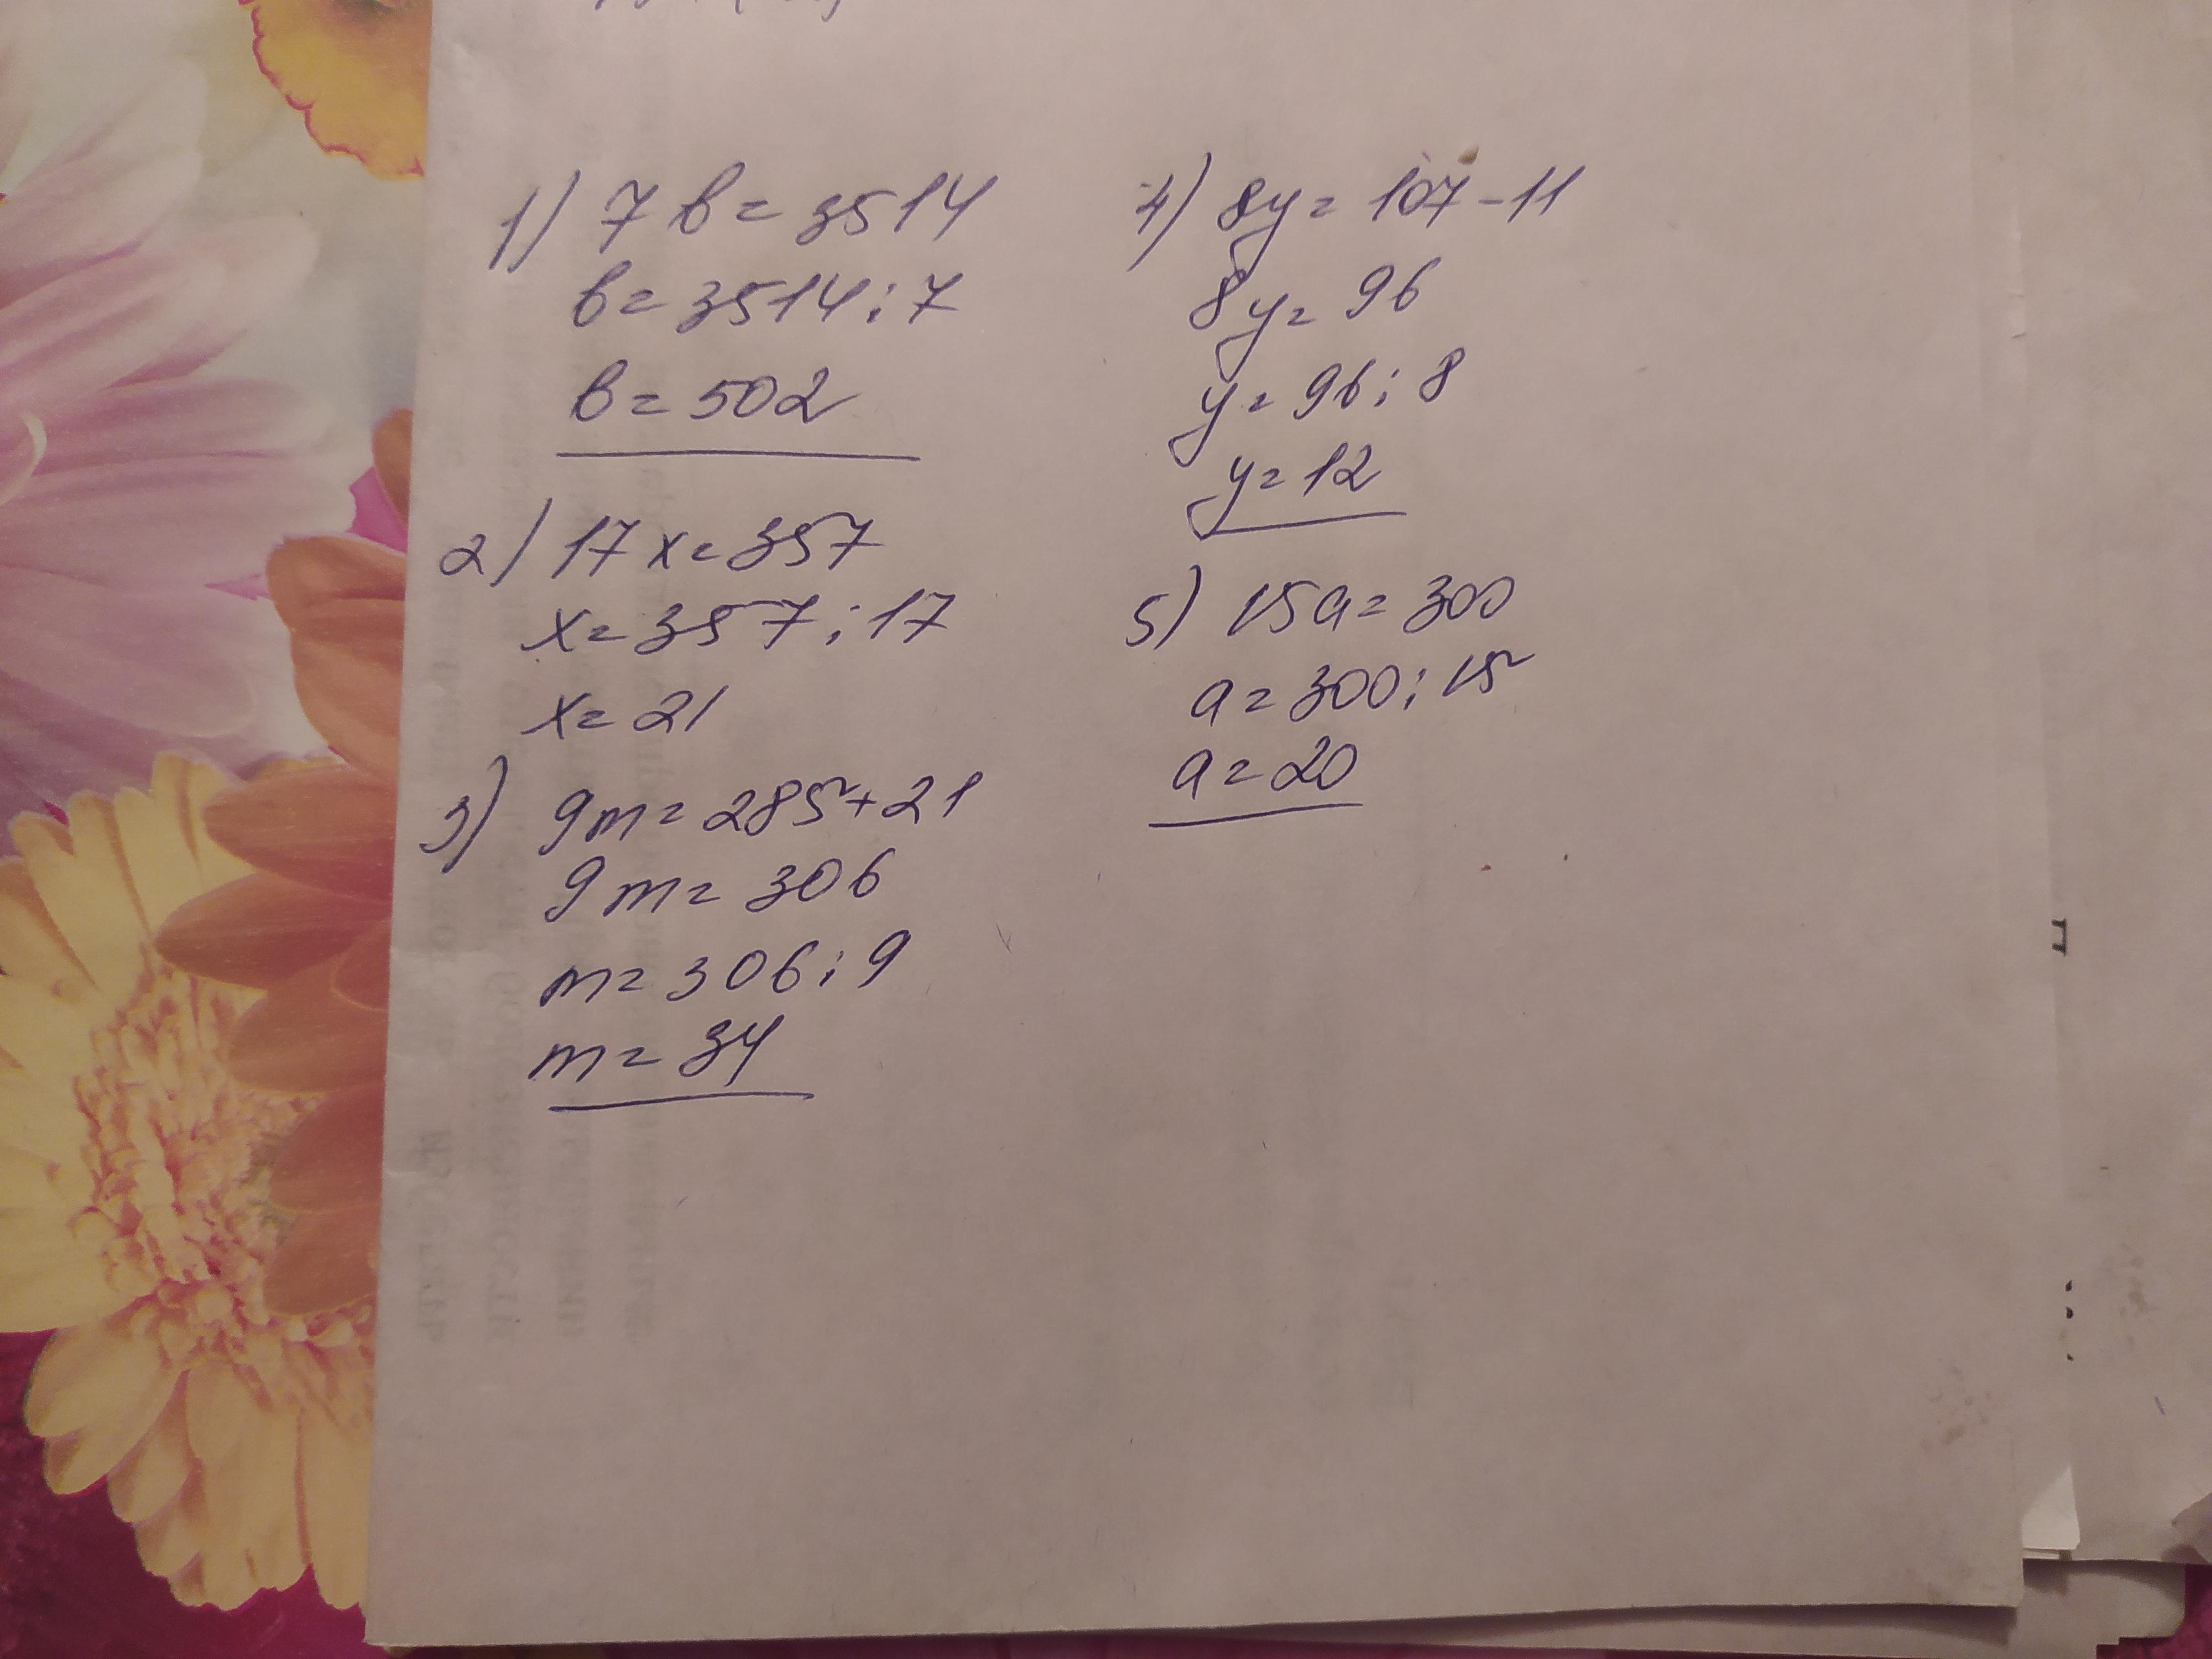 1) 7b=3514
b=3514:7
b=502
2) 17x=357
x=357:17
x=21
3) 9m=285+21
9m=306
m=306:9
m=34
4) 8y=107-11
8y=96
y=96:8
y=12
5) 15a=300
a=300:15
a=20